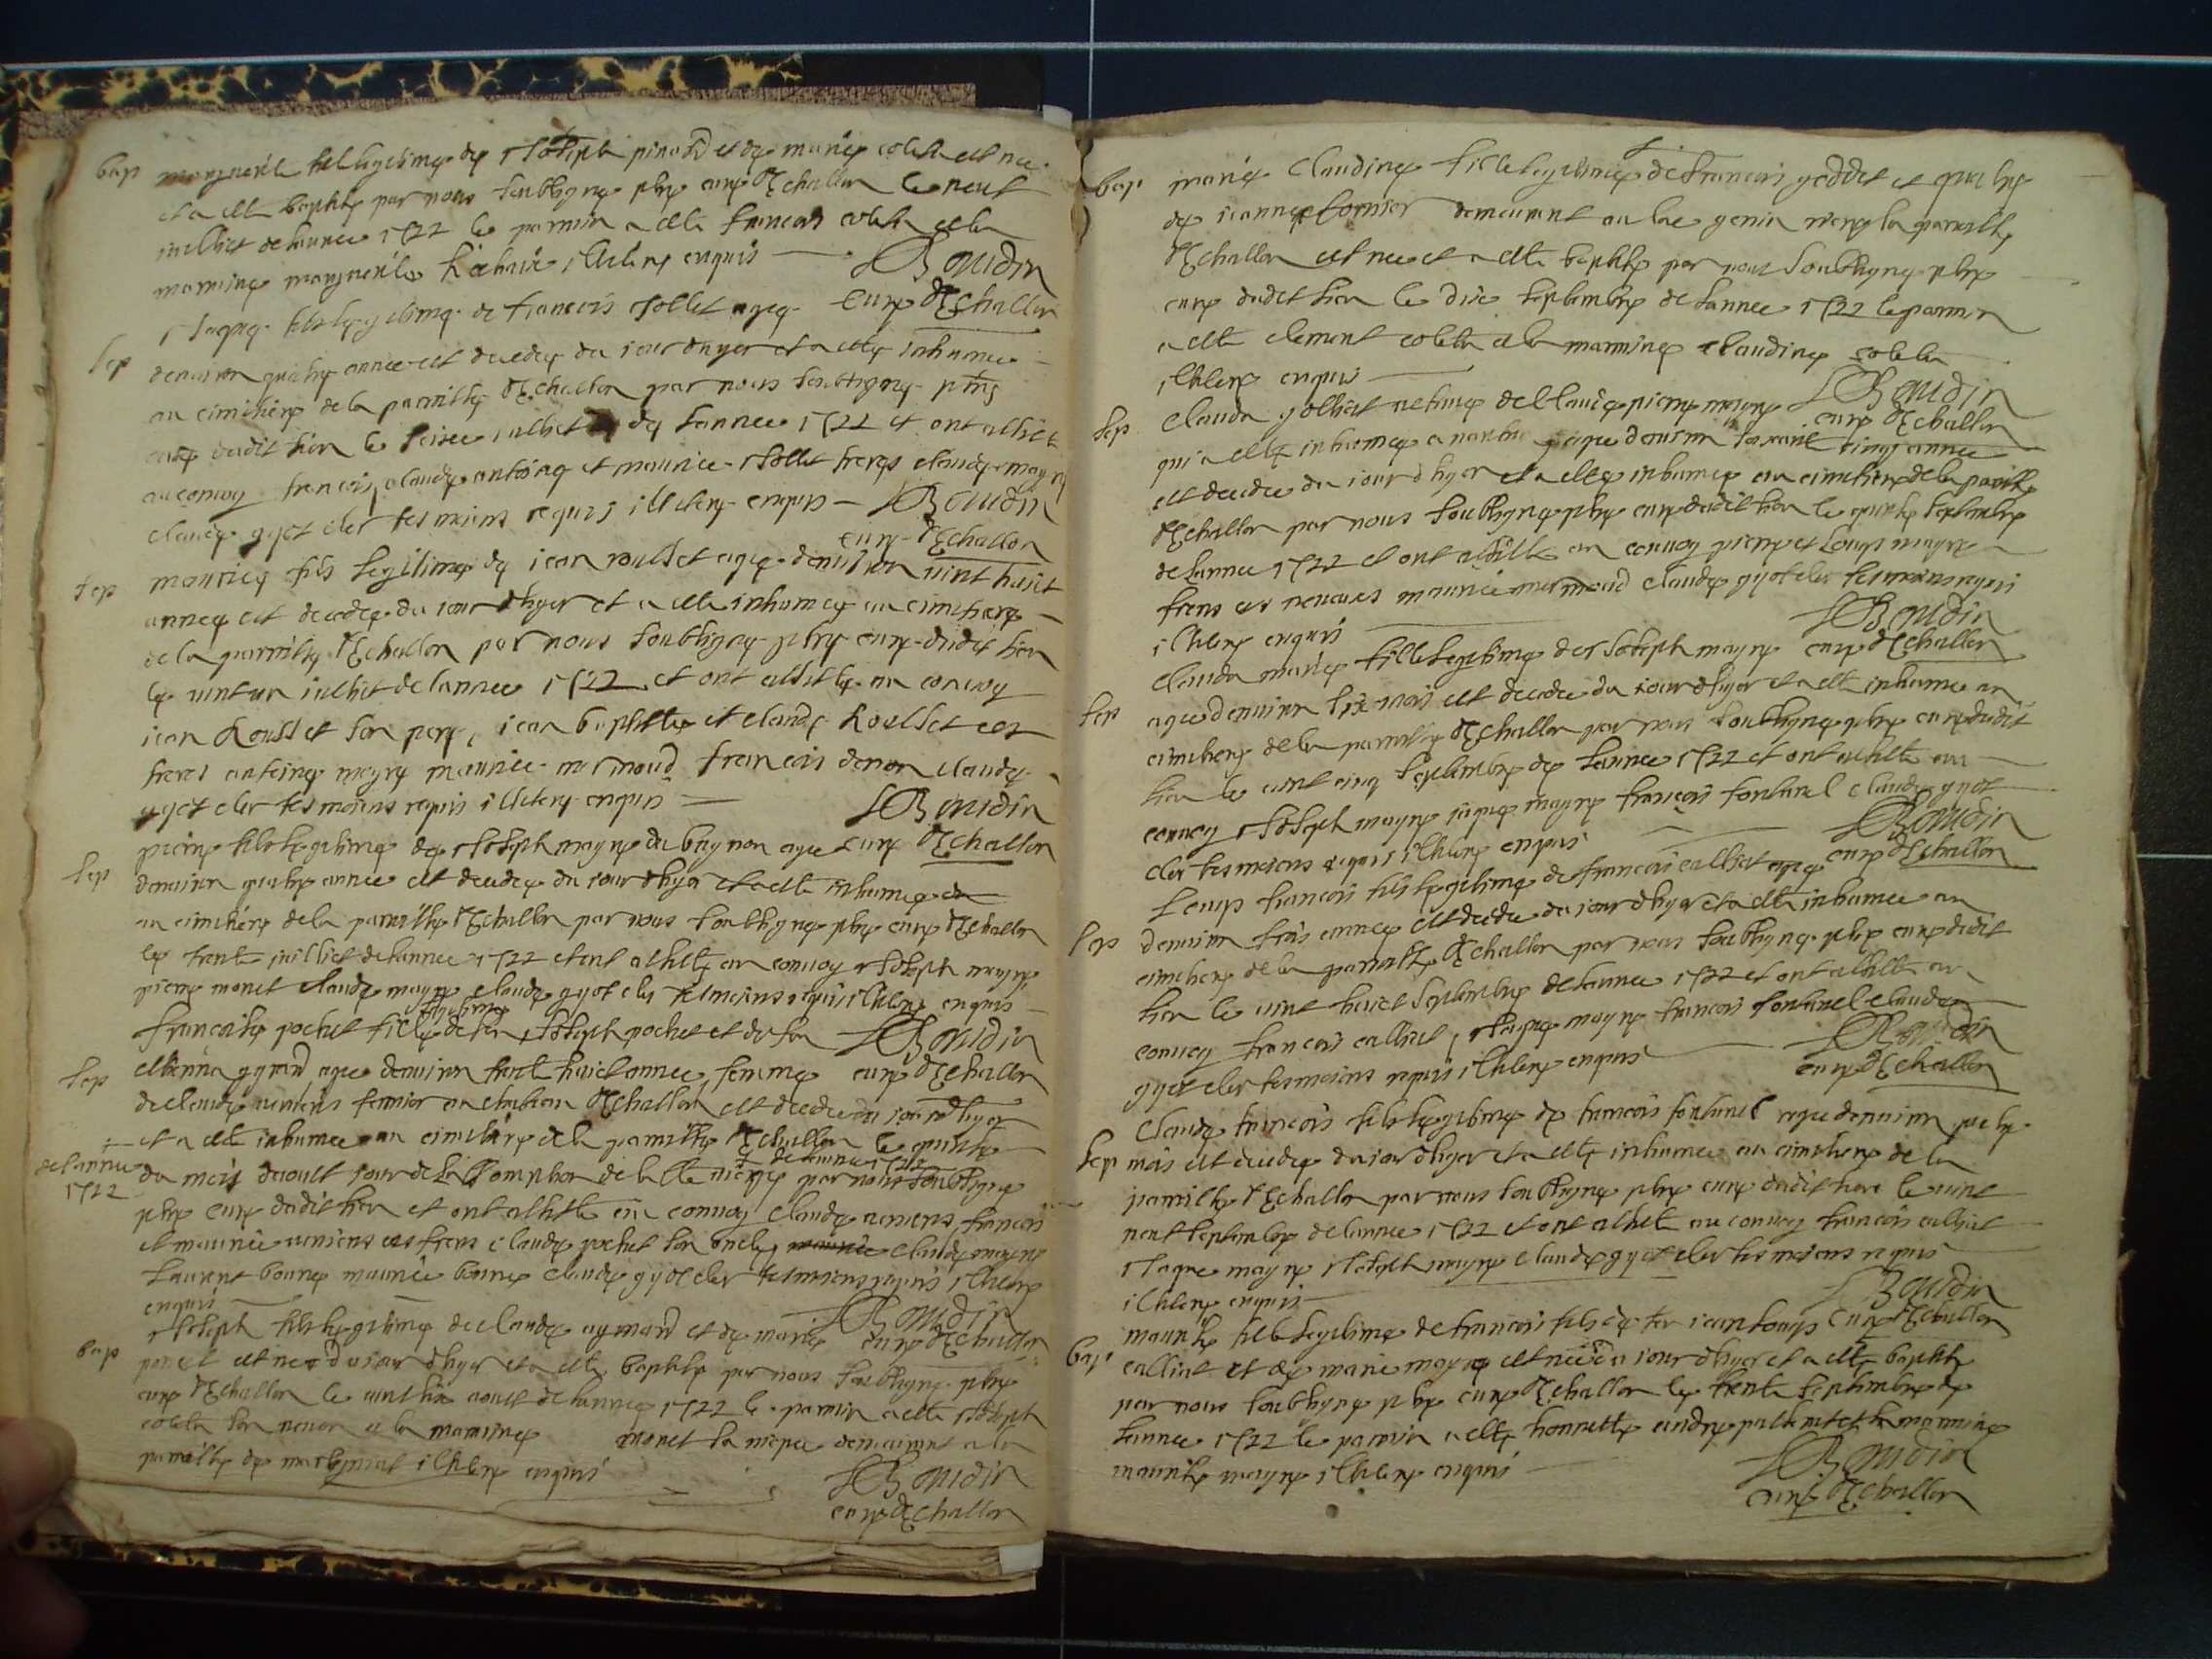 bap
marguerite fille legitime de Joseph pinard et de marie coletta est nee
et a este baptise par nous soubsigne pbre cure d'Echallon le neuf
juilliet de lannee 1722 le parrin a este francois coletta et la
marrine marguerite illitere enquis
Boudin
cure d'Echallon
sep
Jaque fils legitime de francois Jollet age
denviron quatre annee est decedee du jour dhyer et a este inhumee
au cimitiere de la paroisse d'Echallon par nous soubsigne pbre
cure dudit lieu le seize juilliet de lannee 1722 et ont assiste
au convoy francois claude antoine et maurice Jollet freres claude mayre
claude gyot cler tesmoins requis illitere enquis
Boudin
cure d'Echallon
sep
maurice fils legitime de jean rousset age denviron vint huict
annee est decedee du jour dhyer et a este inhumee au cimitiere
de la paroisse d'Echallon par nous soubsigne pbre cure dudit lieu
le vint un juilliet de lannee 1722 et ont assiste au convoy
jean Rousset son pere, jean baptiste et claude Rousset ces
freres antoine mayre maurice mermoud francois claude
gyot cler tesmoins requis illitere enquis
Boudin
cure d'Echallon
sep
pierre fils legitime de Joseph mayre du age
denviron quatre annee est decedee du jour dhyer et a este inhumee
au cimitiere de la paroisse d'Echallon par nous soubsigne pbre cure d'Echallon
le trente juilliet de lannee 1722 et ont assiste au convoy Joseph mayre
pierre monet claude mayre claude gyot cler tesmoins requis illitere enquis
Boudin
cure d'Echallon
sep
francoise pochet fille legitime de feu Joseph pochet et de feu
estienna agee denviron trente huict annee, femme
de claude fermier au chateau d'Echallon, est decedee du jour dhyer
et a este inhumee au cimitiere de la paroisse d'Echallon le quinze
du mois daoust jour de Lassomption de la ste vierge de lannee 1722 par nous soubsigne
de lannee
1722
pbre cure dudit lieu et ont assiste au convoy claude francois
et maurice ces freres claude pochet son oncle claude mayre
Laurent bonne maurice bonne claude gyot cler tesmoins requis illitere
enquis
Boudin
cure d'Echallon
bap
Joseph fils legitime de claude aymard et de marie
ponset est ne du jour dhyer et a este baptise par nous soubsigne pbre
cure d'Echallon le vint aoust de lannee 1722 le parrin a este Joseph
coletta son et la marrine monet sa niepce demeurant a la
paroisse de martignat illitere enquis
Boudin
cure d'Echallon
bap
marie Claudine fille legitime de francois goddet et
de jeanne demeurant au lac genin riere la paroisse
d'Echallon est nee et a este baptise par nous soubsigne pbre
cure dudit lieu le dix septembre de lannee 1722 le parrin
a este clement coletta et la marrine claudine coletta
illitere enquis
Boudin
cure d'Echallon
sep
Clauda jolliet de Claude pierre mayre
qui a este inhumee a nantua agee denviron soixante cinq annee
est decedee du jour dhyer et a este inhumee au cimitiere de la paroisse
d'Echallon par nous soubsigne pbre cure dudit lieu le septembre
de lannee 1722 et ont assiste au convoy pierre et Loup mayre
freres ces neveux maurice mermoud claude gyot cler tesmoins requis
illitere enquis
Boudin
cure d'Echallon
sep
Clauda marie fille legitime de Joseph mayre
agee denviron six mois est decedee du jour dhyer et a este inhumee au
cimitiere de la paroisse d'Echallon par nous soubsigne pbre cure dudit
lieu le vint cinq septembre de lannee 1722 et ont assiste au
convoy Joseph mayre jaque mayre francois fontanel claude gyot
cler tesmoins requis illitere enquis
Boudin
cure d'Echallon
sep
Loup francois fils legitime de francois calliat age
denviron trois annee est decedee du jour dhyer et a este inhumee au
cimitiere de la paroisse d'Echallon par nous soubsigne pbre cure dudit
lieu le vint huict septembre de lannee 1722 et ont assiste au
convoy francois calliat, Jaque mayre francois fontanel claude
gyot cler tesmoins requis illitere enquis
Boudin
cure d'Echallon
sep
Claude francois fils legitime de francois fontanel age denviron
mois est decedee du jour dhyer et a este inhumee au cimitiere de la
paroisse d'Echallon par nous soubsigne pbre cure dudit lieu le vint
neuf septembre de lannee 1722 et ont assiste au convoy francois calliat
Jaque mayre Joseph mayre claude gyot cler tesmoins requis
illitere enquis
Boudin
cure d'Echallon
bap
maurise fille legitime de francois fils de feu jean Loup
calliat et de marie mayre est nee du jour dhyer et a este baptise
par nous soubsigne pbre cure d'Echallon le trente septembre de
lannee 1722 le parrin a este honneste andre et la marrine
maurise mayre illitere enquis
Boudin
cure d'Echallon